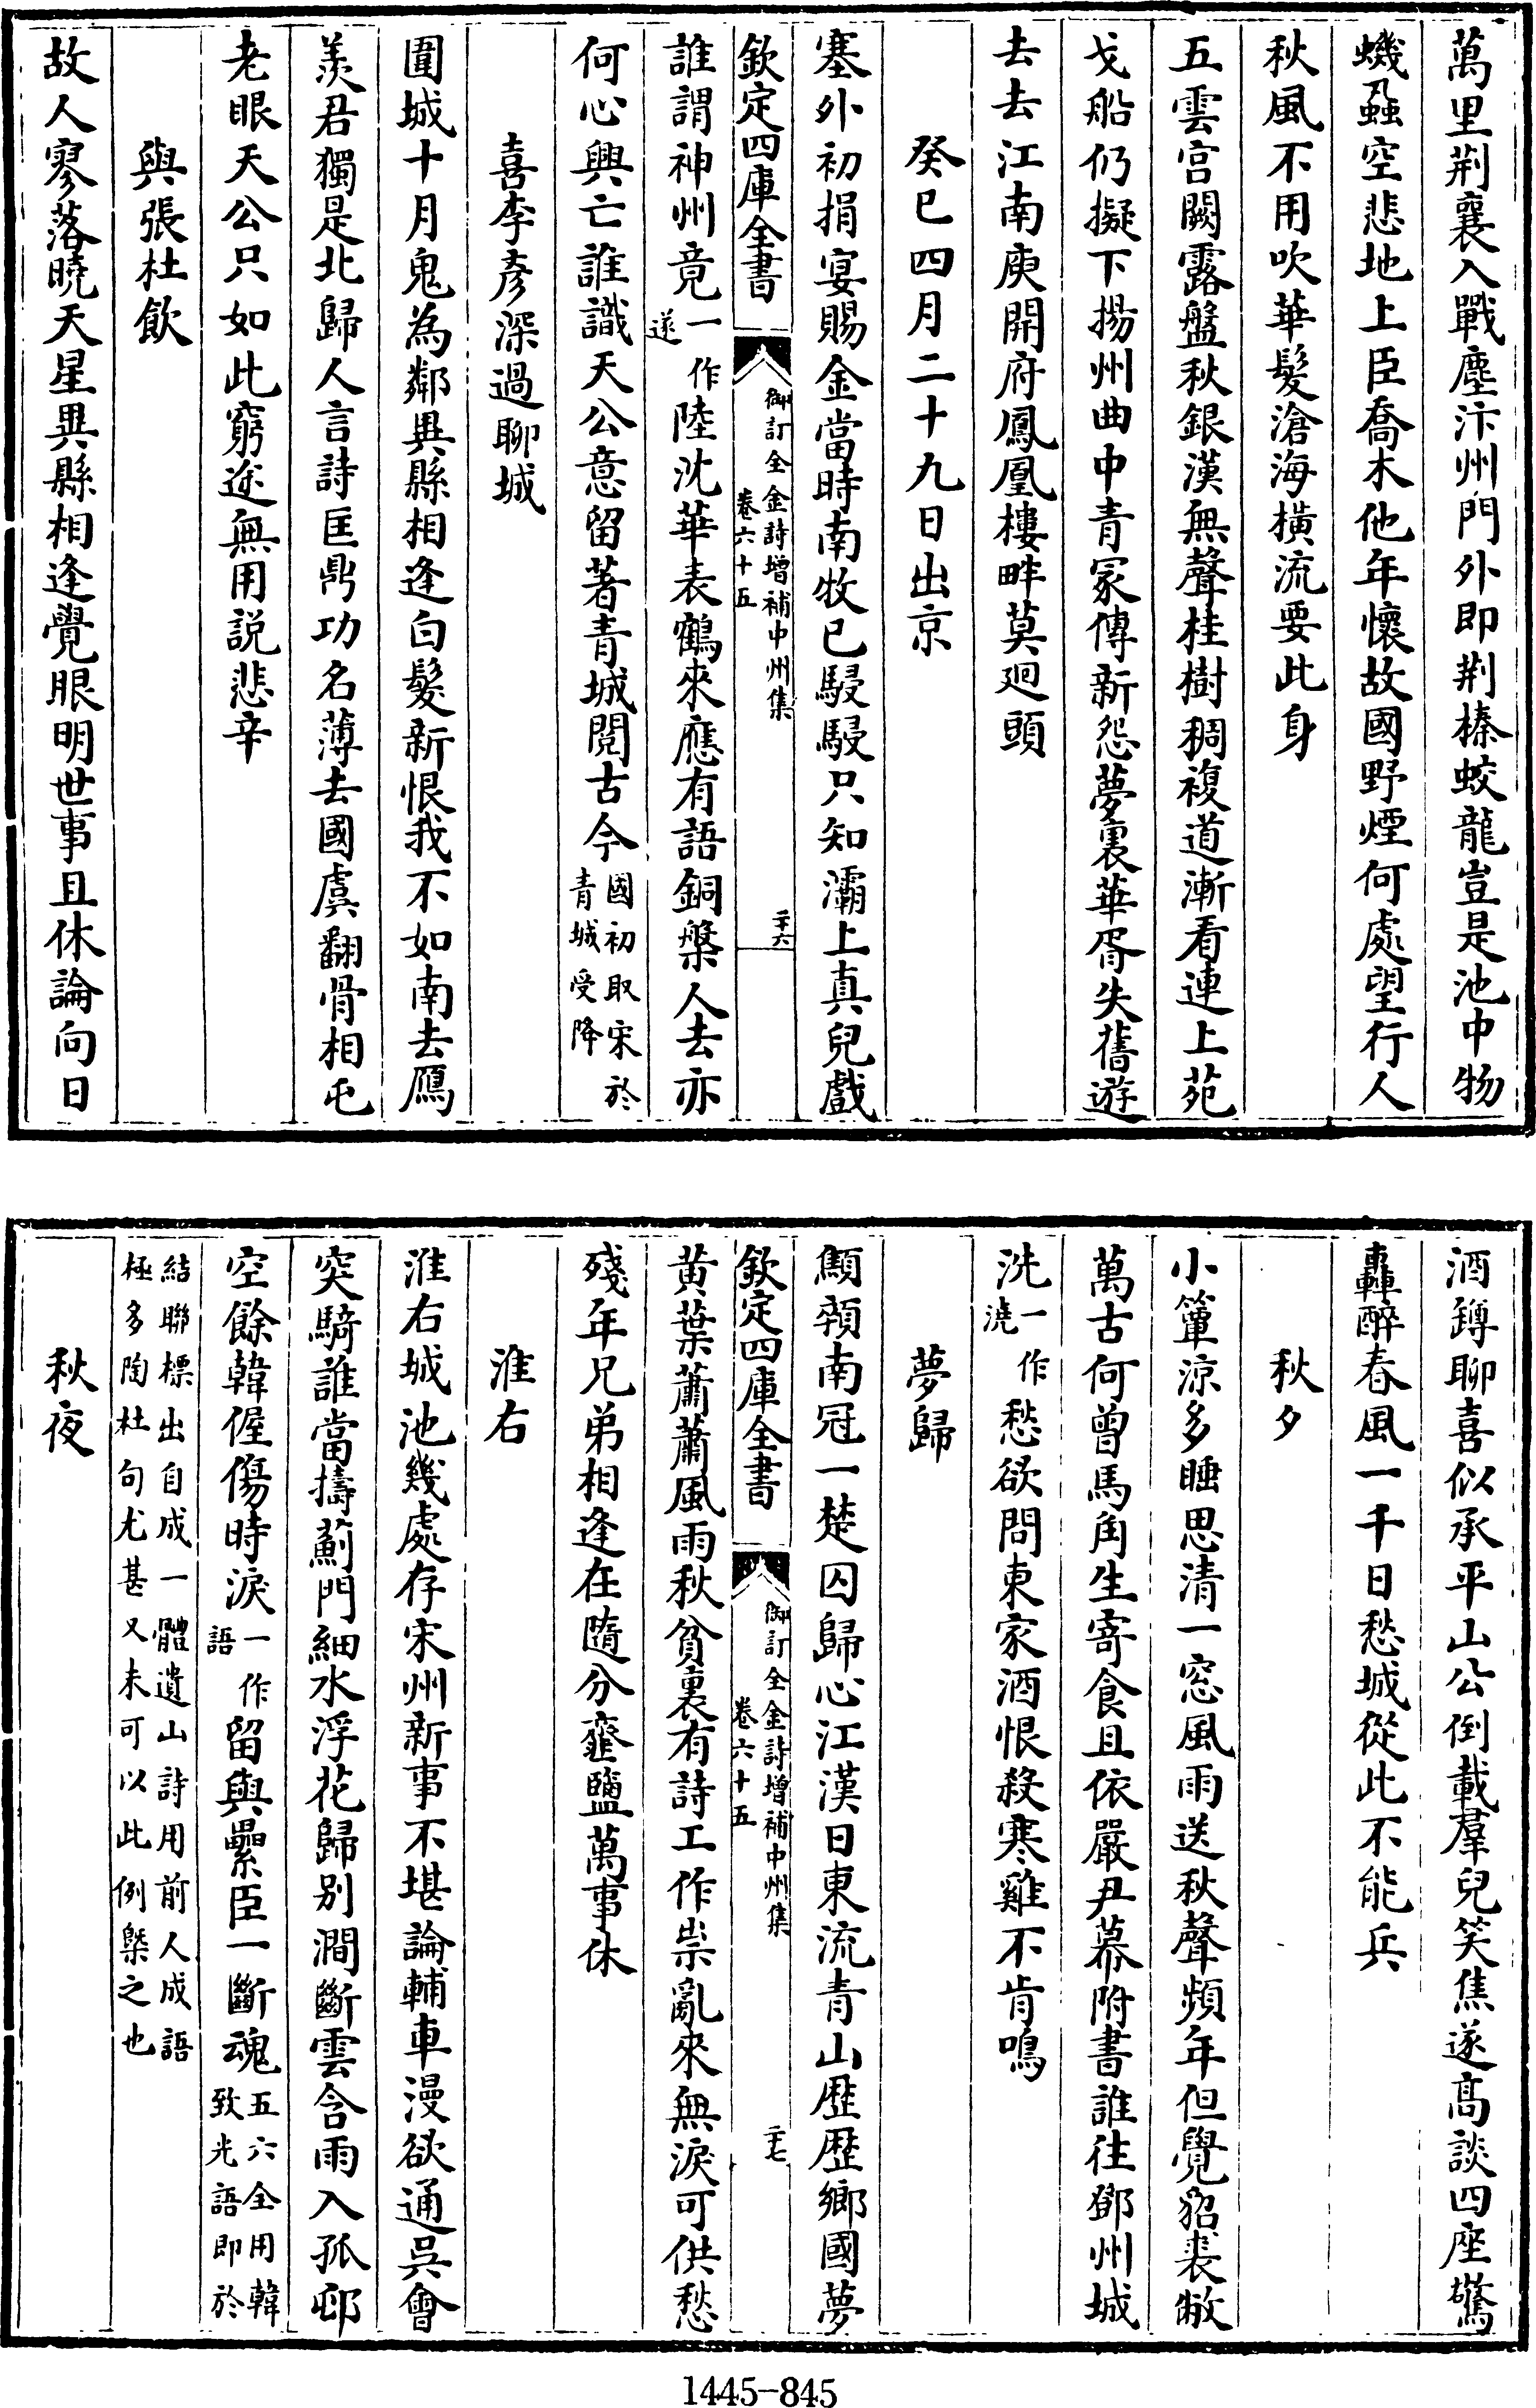 萬里荆襄入戰塵汴州門外即荆榛蛟龍豈是池中物
蟣蝨空悲地上臣喬木他年懷故國野煙何處望行人
秋風不用吹華髮滄海橫流要此身
五雲宫闕露盤秋銀漢無聲桂樹稠複道漸看連上苑
戈船仍擬下揚州曲中青冢傳新怨夢裏華胥失舊遊
去去江南庾開府鳳凰樓畔莫廻頭
癸巳四月二十九日出京
塞外初捐宴賜金當時南牧已駸駸只知灞上真兒戲
欽定四庫全書
御訂全金詩增補中州集
卷六十五
二十六
誰謂神州竟一作遂陸沈華表鶴來應有語銅槃人去亦
何心興亡誰識天公意留著青城閱古今國初取宋於青城受降
喜李彦深過聊城
圍城十月鬼為鄰異縣相逢白髮新恨我不如南去鴈
羨君獨是北歸人言詩匡鼎功名薄去國虞翻骨相屯
老眼天公只如此窮途無用説悲辛
與張杜飲
故人寥落曉天星異縣相逢覺眼明世事且休論向日
酒罇聊喜似承平山公倒載羣兒笑焦遂高談四座驚
轟醉春風一千日愁城從此不能兵
秋夕
小簟涼多睡思清一窓風雨送秋聲頻年但覺貂裘敝
萬古何曾馬角生寄食且依嚴尹幕附書誰往鄧州城
洗一作澆愁欲問東家酒恨殺寒雞不肯鳴
夢歸
顦顇南冠一楚囚歸心江漢日東流青山歷歷鄉國夢
欽定四庫全書
御訂全金詩增補中州集
卷六十五
二十七
黄葉蕭蕭風雨秋貧裏有詩工作祟亂來無淚可供愁
殘年兄弟相逢在隨分虀鹽萬事休
淮右
淮右城池幾處存宋州新事不堪論輔車漫欲通吳會
突騎誰當擣薊門細水浮花歸别澗斷雲含雨入孤邨
空餘韓偓傷時淚一作語留與纍臣一斷魂五六全用韓致光語即於
結聯標出自成一體遺山詩用前人成語
極多陶杜句尤甚又未可以此例槩之也
秋夜
1445-845